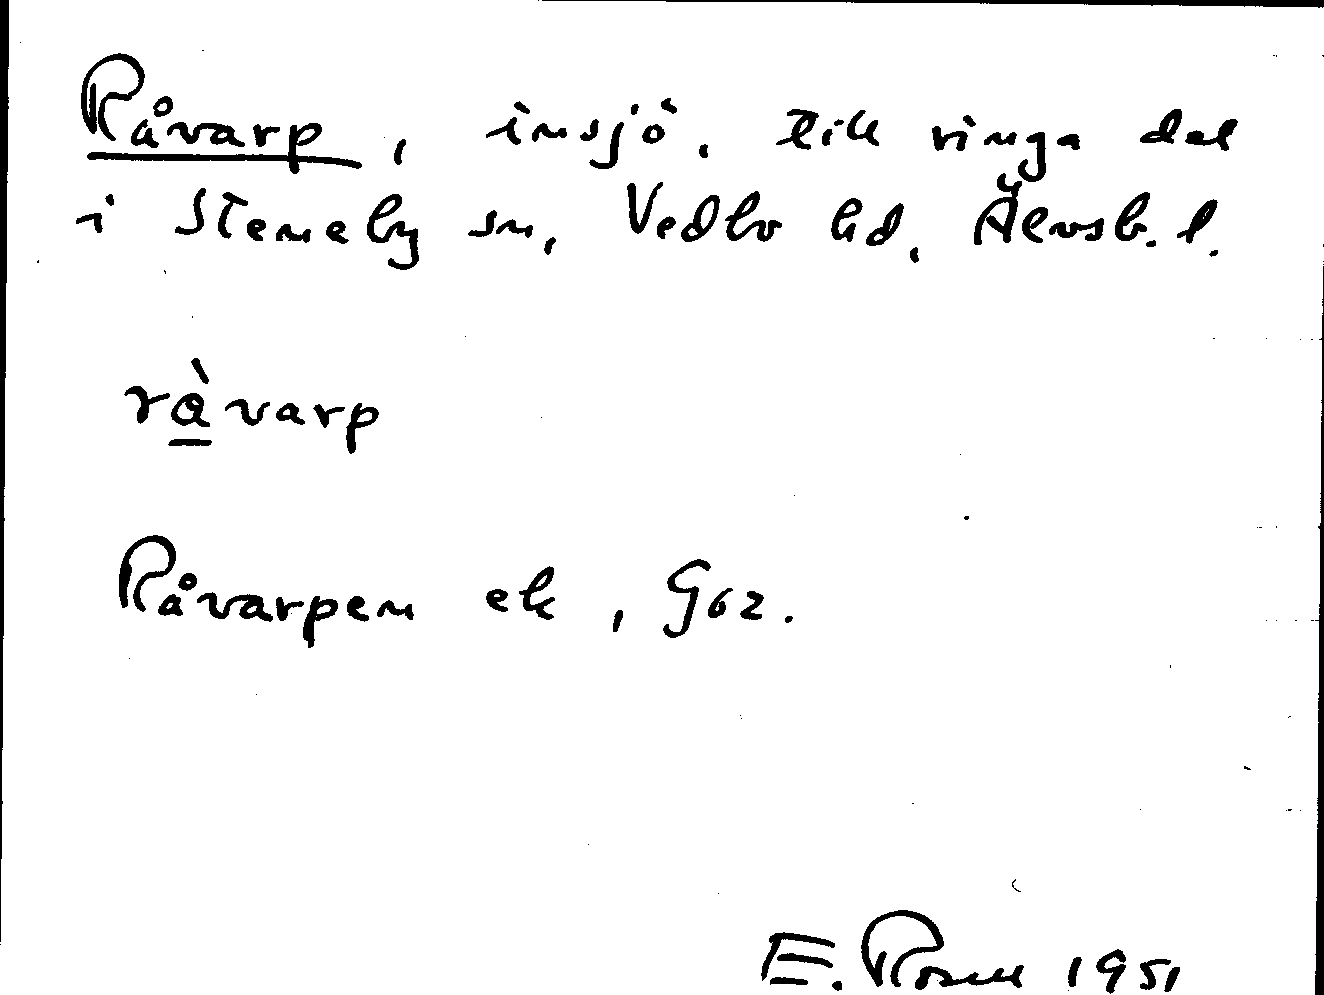 Råvarp, insjö, till ringa del
i Steneby sn, Vedbo hd, Älvsb. l.
rà̲varp
Råvarpen ek, Gbz.
E. Rosell 1951